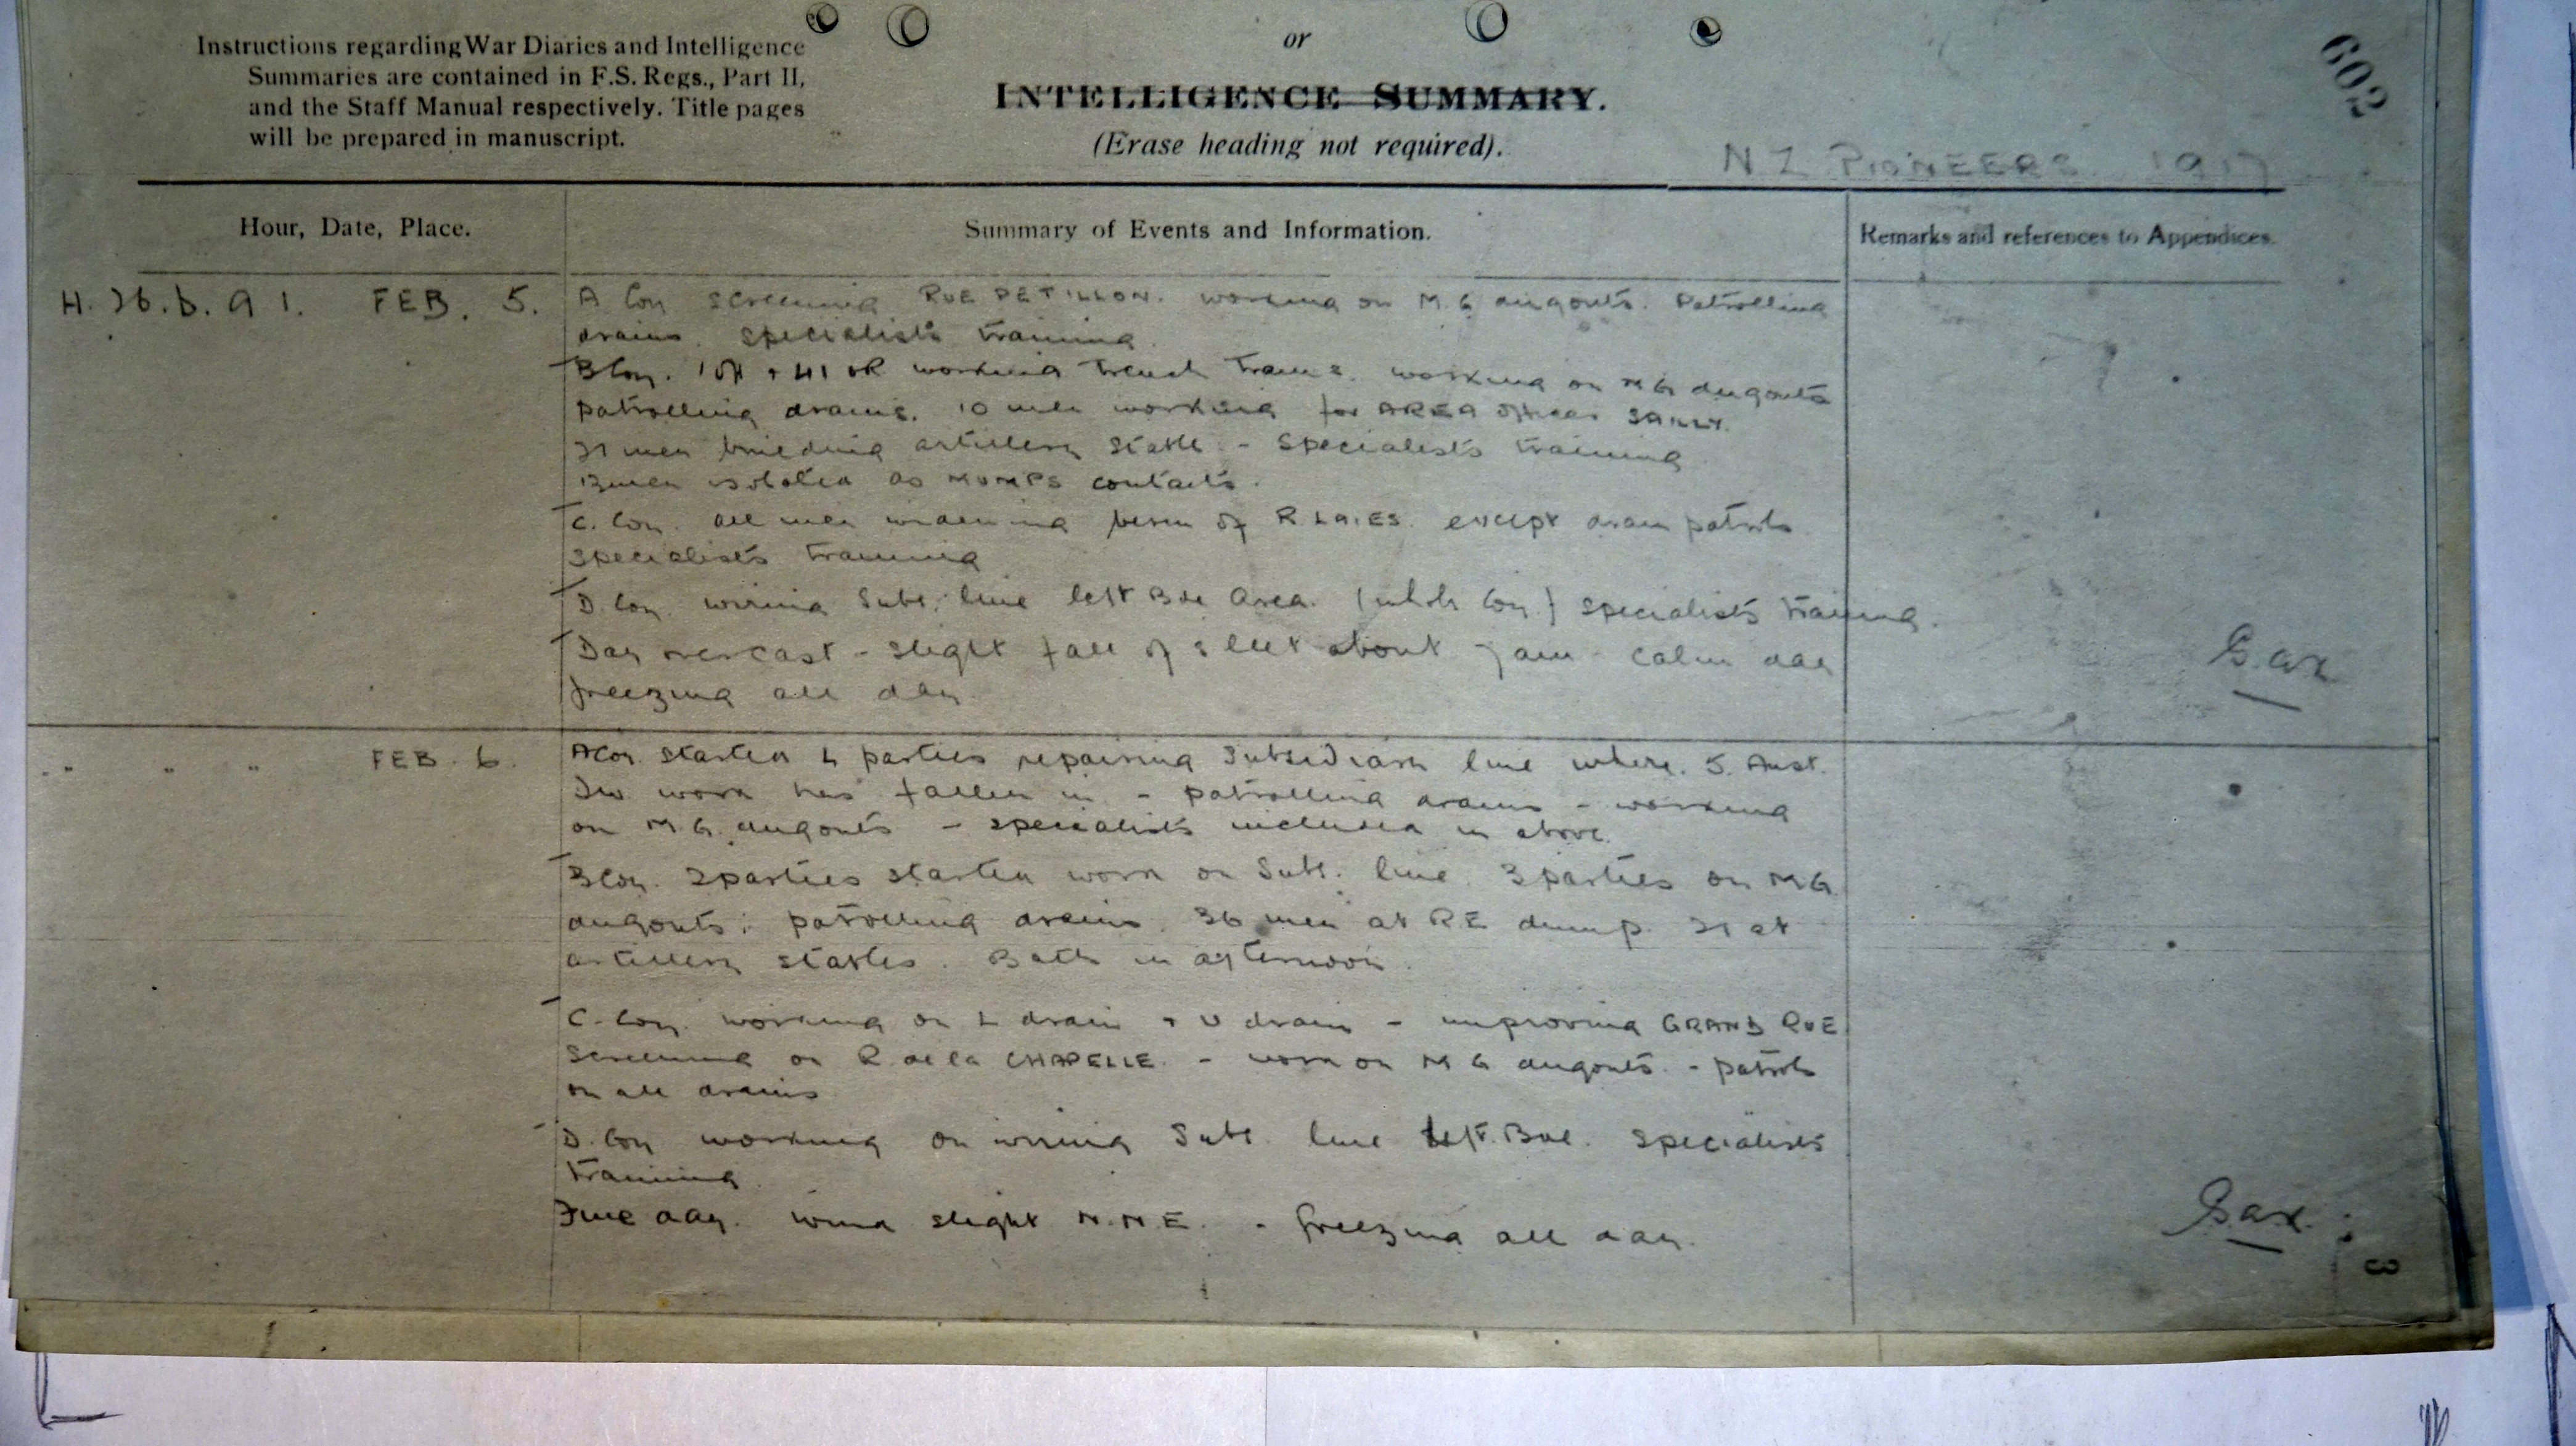 Instructions regarding War Diaries and Intelligence
Summaries are contained in F.S. Regs., Part II,
and the Staff Manual respectively. Title pages
will be prepared in manuscript.
or
INTELLIGENCE SUMMARY.
(Erase heading not required).
602
N Z PIONEERS 1917
Hour, Date, Place.
Summary of Events and Information.
Remarks and references to Appendices.
H. 36. b. 9 1. FEB. 5.
A Coy screening RUE PETILLON. working on M.G dugouts. Patrolling
drains. specialists training.
B Coy. 1 off + 41 OR working trench trams. working on MG dugouts
patrolling drains. 10 men working for AREA officer SAILLY.
21 men building artillery stable - specialists training
13 men isolated as MUMPS contacts.
C. Coy. all men widening berm of R. LAIES. except drain patrols
specialists training
D. Coy. wiring Subs. line left Bde Area. (whole Coy.) specialists training.
Day overcast - slight fall of sleet about 7 am - calm day
freezing all day.
" " " FEB. 6.
A Coy. started 4 parties repairing Subsidiary line where 5. Aust.
Div work has fallen in - patrolling drains - working
on M.G. dugouts - specialists included in above.
B Coy. 2 parties started work on Subs. line. 3 parties on MG
dugouts: patrolling drains. 36 men at RE dump. 21 at
artillery stables. Bath in afternoon.
C. Coy. working on L drain + V drain - improving GRAND RUE
screening on R de la CHAPELLE - work on M G dugouts. - patrols
on all drains
D. Coy working on wiring Subs. line left. Bde. specialists
training.
Fine day. wind slight N.N.E. - freezing all day.
3